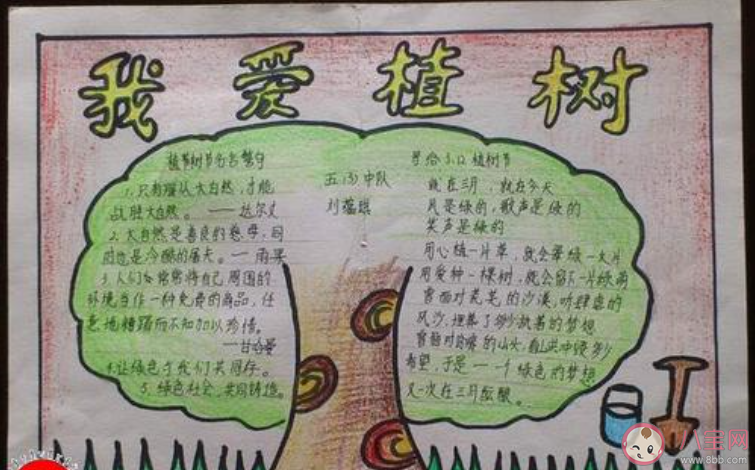 我爱植树
植树节名言警句
1.只有顺从大自然，才能
战胜大自然。——达尔文
2.大自然是善良的慈母，同
时也是冷酷的屠夫。—雨果
3.人们常常将自己周围的
环境当作一种免费的商品，任
意地糟蹋而不知加以珍惜。
——甘哈曼
4.让绿色与我们共同存。
5.绿色社会，共同铸造。
五(3)中队
刘蕴琪
写给3.12植树节
我在三月，就在今天
风是绿的，歌声是绿的
笑声是绿的
用心植一片草，就会翠绿一大片
用爱种一棵树，就会留下一片绿荫
面对荒芜的沙漠，听肆虐的
风沙，埋葬了多少执着的梦想
面对的山头，山洪冲毁多少
希望，于是一个绿色的梦想
又一次在三月酝酿。
八宝网
www.8bb.com